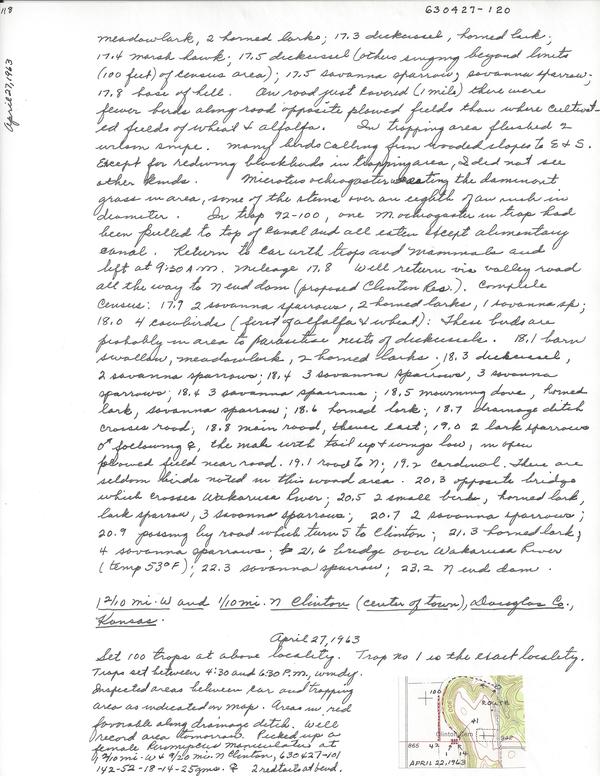 118
630427-120
April 27, 1963
meadowlark, 2 horned larks; 17.3 dickcissel, horned lark;
17.4 marsh hawk; 17.5 dickcissel (others singing beyond limits
(100 feet) of census area); 17.5 savanna sparrow, savanna sparrow;
17.8 base of hill. On road just covered (1 mile) there were
fewer birds along road opposite plowed fields than where cultivat-
ed fields of wheat & alfalfa. In trapping area flushed 2
wilson snipe. Many birds calling from wooded slopes to E & S.
Except for redwing blackbirds in trapping area, I did not see
other kinds. Microtus ochrogaster eating the dominant
grass in area, some of the stems over an eighth of an inch in
diameter. In trap 92-100, one M ochrogaster in trap had
been pulled to top of canal and all eaten except alimentary
canal. Return to car with traps and mammals and
left at 9:30 A.M. mileage 17.8 Will return via valley road
all the way to N end dam (proposed Clinton Res.). Complete
census: 17.9 2 savanna sparrows, 2 horned larks, 1 savanna sp;
18.0 4 cowbirds (first of alfalfa & wheat): These birds are
probably in area to parasitise nests of dickcissels. 18.1 barn
swallow, meadowlark, 2 horned larks. 18.3 dickcissel,
2 savanna sparrows; 18.4 3 savanna sparrows, 3 savanna
sparrows; 18.4 3 savanna sparrows; 18.5 mourning dove, horned
lark, savanna sparrow; 18.6 horned lark; 18.7 drainage ditch
crosses road; 18.8 main road, thence east; 19.0 2 lark sparrows
♂ following ♀, the male with tail up & wings low, in open
plowed field near road. 19.1 road to N; 19.2 cardinal. There are
seldom birds noted in this wood area. 20.3 opposite bridge
which crosses Wakarusa River; 20.5 2 small birds, horned lark,
lark sparrow, 3 savanna sparrows; 20.7 2 savanna sparrows;
20.9 passing by road which turn S to Clinton; 21.3 horned lark;
4 savanna sparrows; 21.6 bridge over Wakarusa River
(temp 53° F); 22.3 savanna sparrow; 23.2 N end dam.
1 2/10 mi. W and 1/10 mi. N Clinton (center of town), Douglas Co.,
Kansas.
April 27, 1963
Set 100 traps at above locality. Trap no 1 is the exact locality.
Traps set between 4:30 and 6:30 P.M., windy.
Inspected areas between car and trapping
area as indicated on map. Areas in red
favorable along drainage ditch. Will
record area tomorrow. Picked up a
female Peromyscus maniculatus at
2/10 mi. W & 9/20 mi. N Clinton, 630427-101
142-52-18-14-25gms. & 2 redtails at bend.
100
ROUTE
900
41
Clinton Cem
865
42
1
14
APRIL 22, 1963